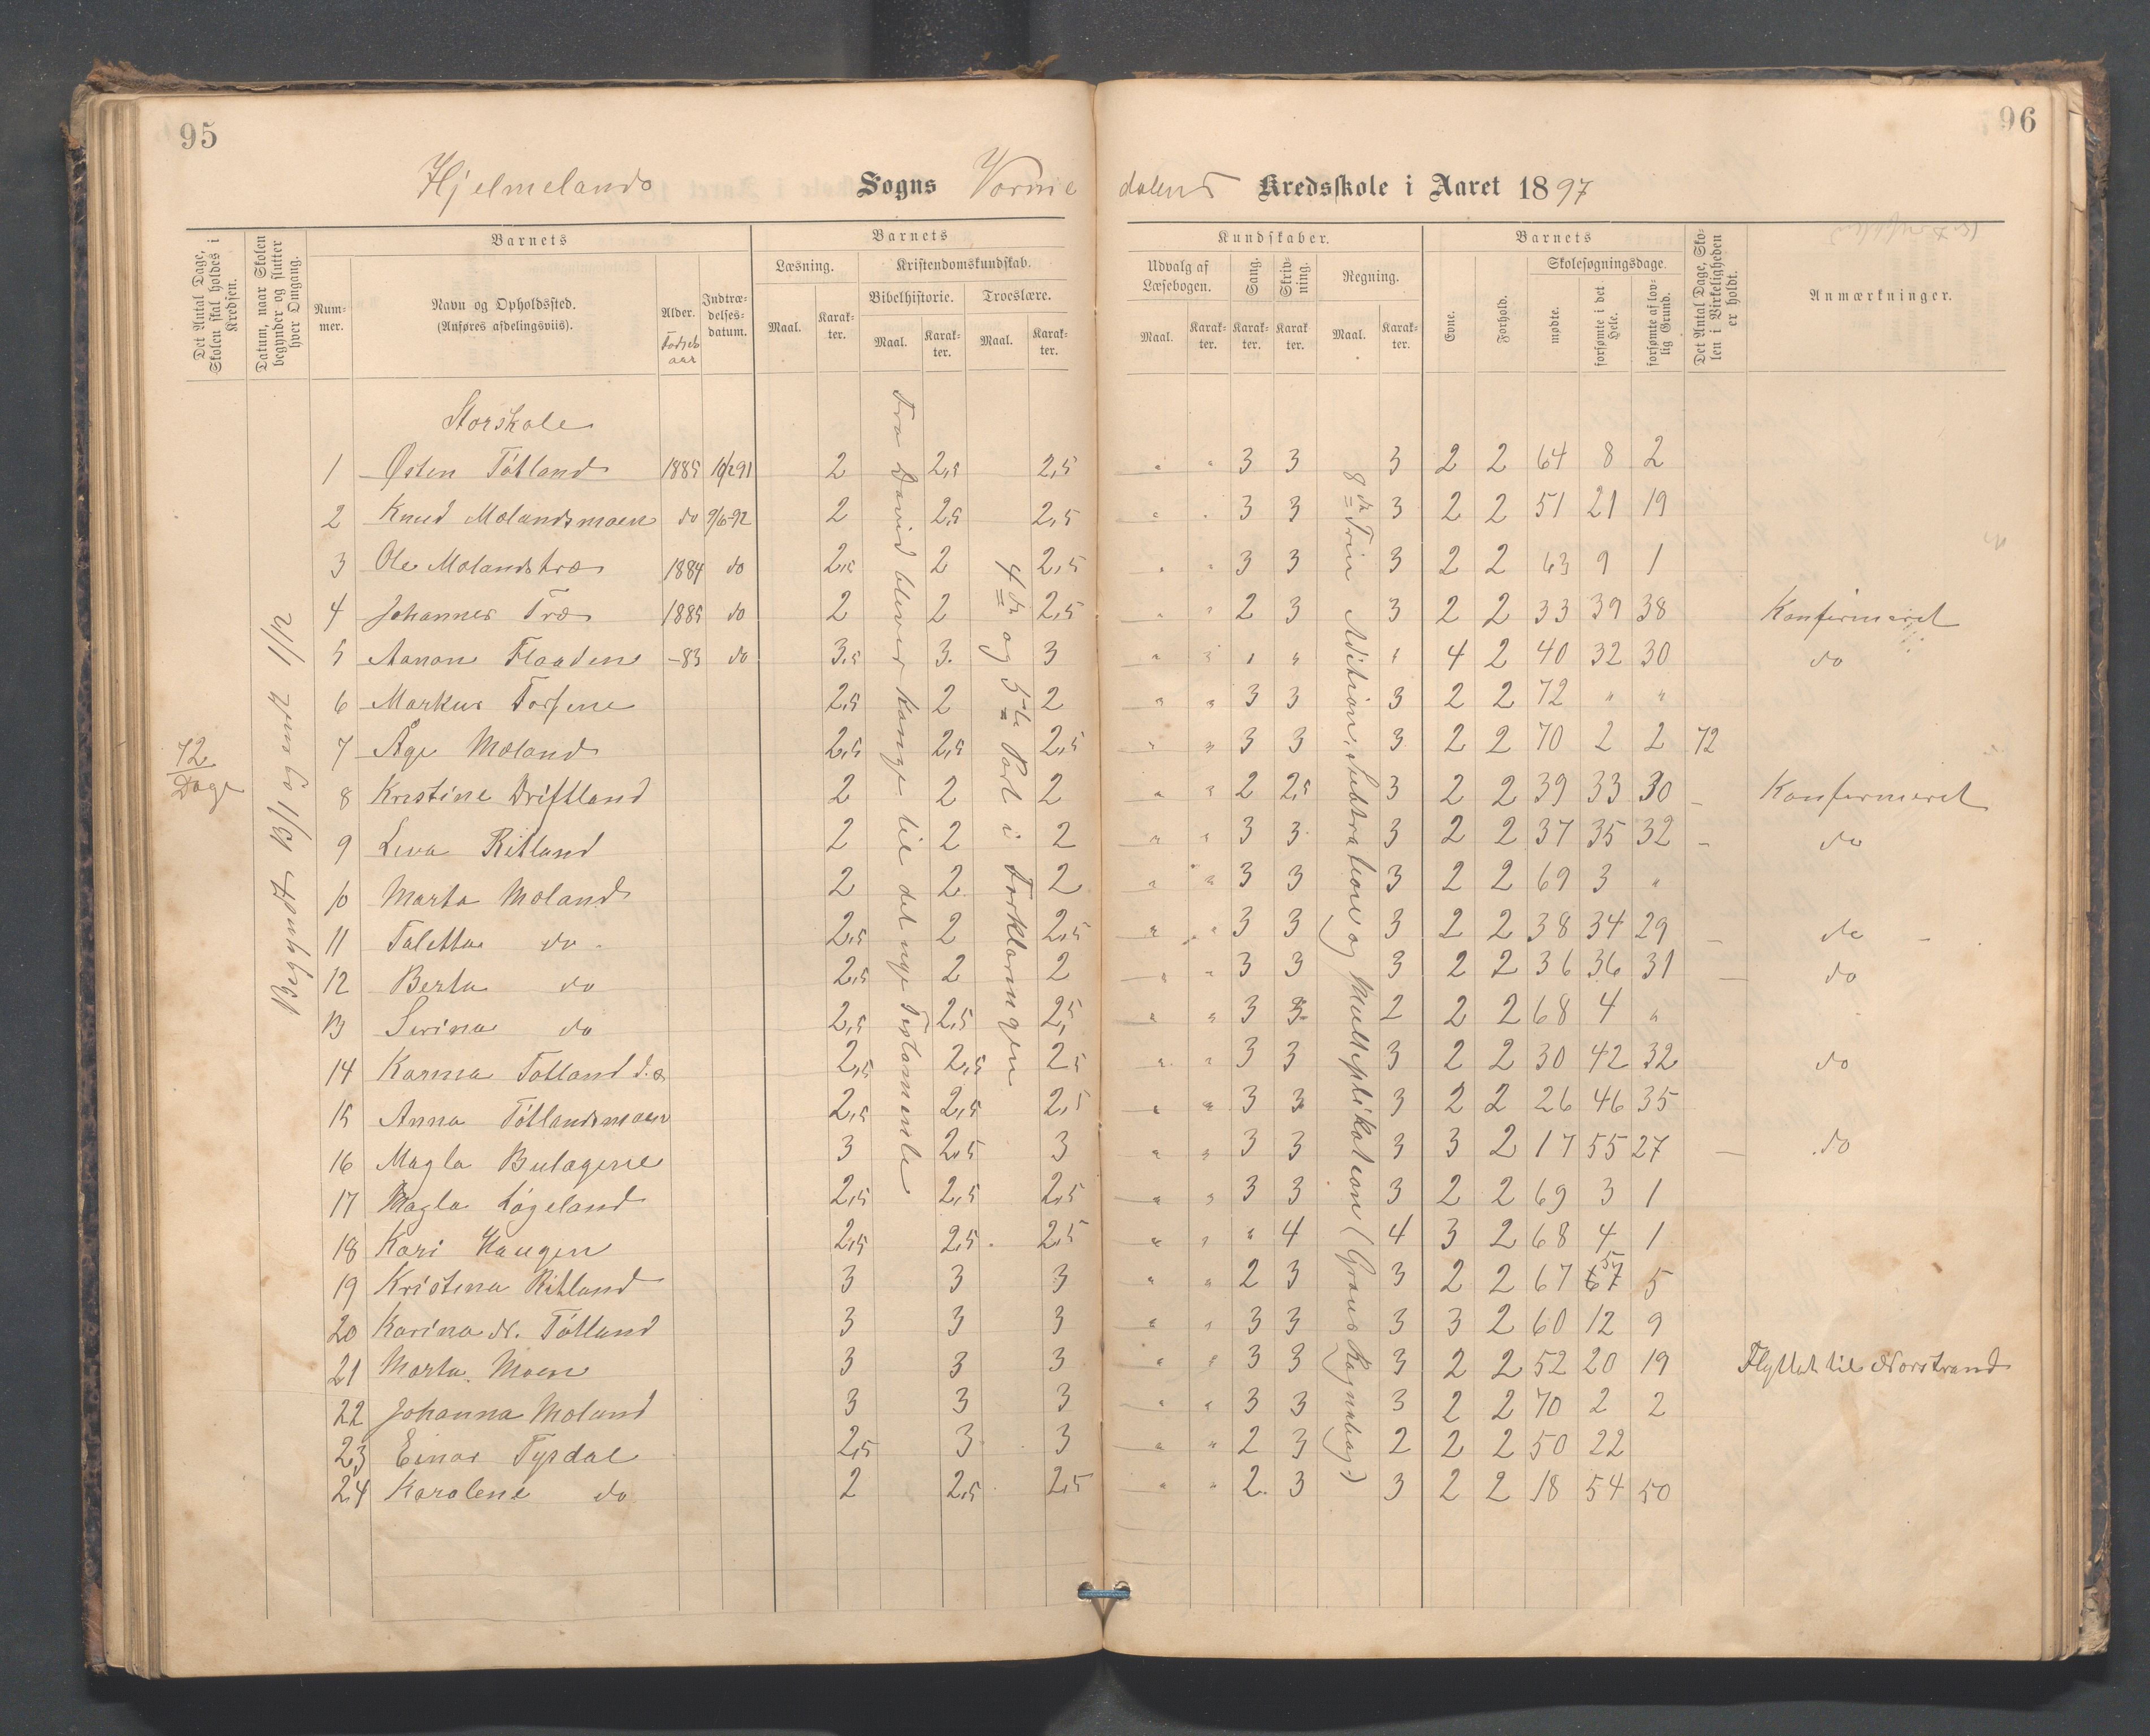 95
96
Hjelmelands Sogns Vorme dalens Kredsskole i Aaret 1897
Det Antal Dage, Skolen skal holdes i Kredsen.
Datum, naar Skolen begynder og slutter hver Omgang.
Barnets
Nummer.
Navn og Opholdssted. (Anføres afdelingsviis).
Alder. Fødselsaar
Indtrædelsesdatum.
Barnets
Læsning.
Kristendomskundskab.
Bibelhistorie.
Troeslære.
Maal.
Karakter.
Maal.
Karakter.
Maal.
Karakter.
Kundskaber.
Udvalg af Læsebogen.
Sang.
Skrivning.
Regning.
Maal.
Karakter.
Karakter.
Karakter
Maal.
Karakter.
Barnets
Evne.
Forhold.
Skolesøgningsdage.
mødte.
forsømte i det Hele.
forsømte af lovlig Grund.
Det Antal Dage, Skolen i Virkeligheden er holdt.
Anmærkninger.
72 Dage
Begyndt 13/1 og endt 1/12
Fra David bliver Konge til det nye Testamente
4de og 5te Part i Forklaringen
8de Trin Adition, Subtration og Multeplikation (Grønds Regnebog)
Storskole
1 Østen Tøtland 1885 10/12 91 2 2,5 2,5 " " 3 3 3 2 2 64 8 2
2 Knud Mølandsmoen do 9/6-92 2 2,5 2,5 " " 3 3 3 2 2 51 21 19
3 Ole Mølandstræ 1884 do 2,5 2 2,5 " " 3 3 3 2 2 63 9 1
4 Johannes Træ 1885 do 2 2 2,5 " " 2 3 3 2 2 33 39 38 Konfirmeret
5 Aanon Flaaden -83 do 3,5 3. 3 " " " " " 4 2 40 32 30 do
6 Markus 2,5 2 2 " " 3 3 3 2 2 72 " "
7 Åge Mæland 2,5 2,5 2,5 " " 3 3 3 2 2 70 2 2 72
8 Kristine Driftland 2 2 2 " " 2 2,5 3 2 2 39 33 30 Konfirmeret
9 Lina Ritland 2 2 2 " " 3 3 3 2 2 37 35 32 do
10 Marta Mæland 2 2 2 " " 3 3 3 2 2 69 3 "
11 Taletta do 2,5 2 2,5 " " 3 3 3 2 2 38 34 29 do
12 Berta do 2,5 2 2 " " 3 3 3 2 2 36 36 31 do
13 Serina do 2,5 2,5 2,5 " " 3 3 2 2 2 68 4 "
14 Karina Tøtland 2,5 2,5 2,5 " " 3 3 3 2 2 30 42 32 do
15 Anna Tøtlandsmoen 2,5 2,5 2,5 " " 3 3 3 2 2 26 46 35
16 Magla 3 2,5 3 " " 3 3 3 3 2 17 55 27 do
17 Magla Løgeland 2,5 2,5 2,5 " " 3 3 3 2 2 69 3 1
18 Kari Haugen 2,5 2,5 2,5 " " " 4 4 3 2 68 4 1
19 Kristina Ritland 3 3 3 " " 2 3 3 2 2 67 5 5
20 Karina N. Tøtland 3 3 3 " " 3 3 3 3 2 60 12 9
21 Marta Moen 3 3 3 " " 3 3 3 2 2 52 20 19 Flyttet til Norstrand
22 Johanna Mæland 3 3 3 " " 3 3 3 2 2 70 2 2
23 Einar Tysdal 2,5 3 3 " " 2 3 2 2 2 50 22
24 Karolene do 2 2,5 2,5 " " 2 3 3 2 2 18 54 50